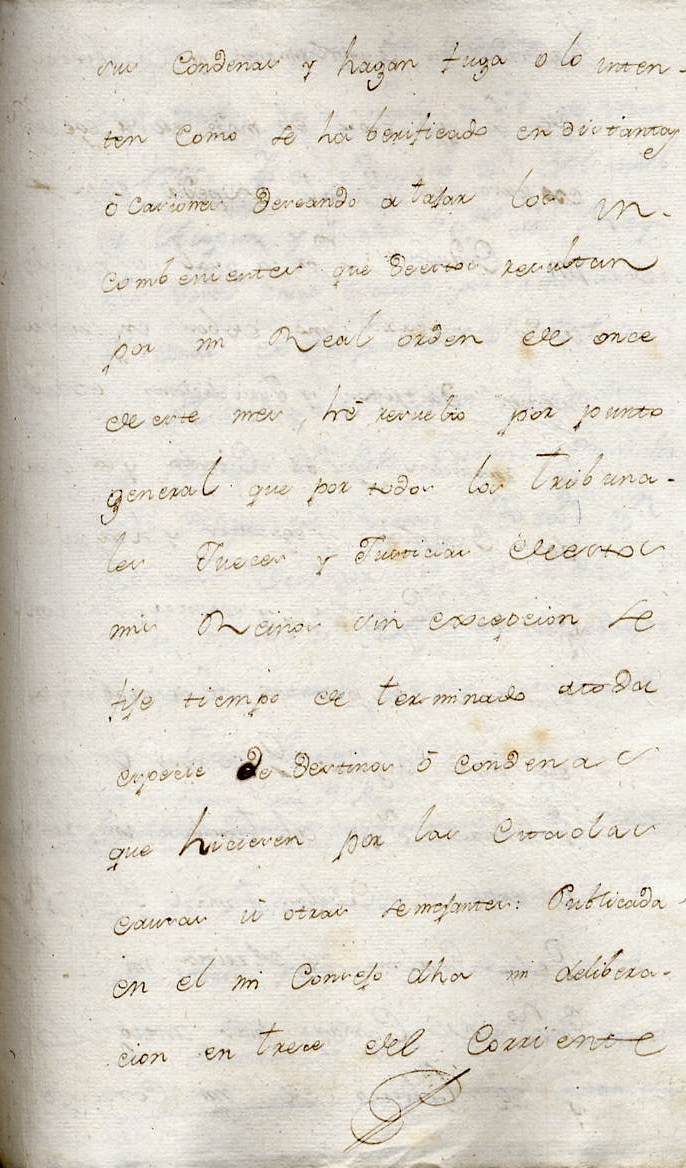 sus Condenas y hagan fuga o lo inten-
ten como se ha berificado en distintas
ócasiones deseando atajar los in-
combenientes que deestos resultan
por mi Real orden de once
de este mes, hé resuelto por punto
general que por todos los Tribuna-
les Jueces y Justicias de estos
mis Reinos sin excepcion se
fije tiempo determinado atodas
especie de Destinos ó Condenas
que hicieren por las Citadas
causas ú otras semejantes: Publicada
en el mi Consejo dha mi delibera-
cion en trece del Corriente